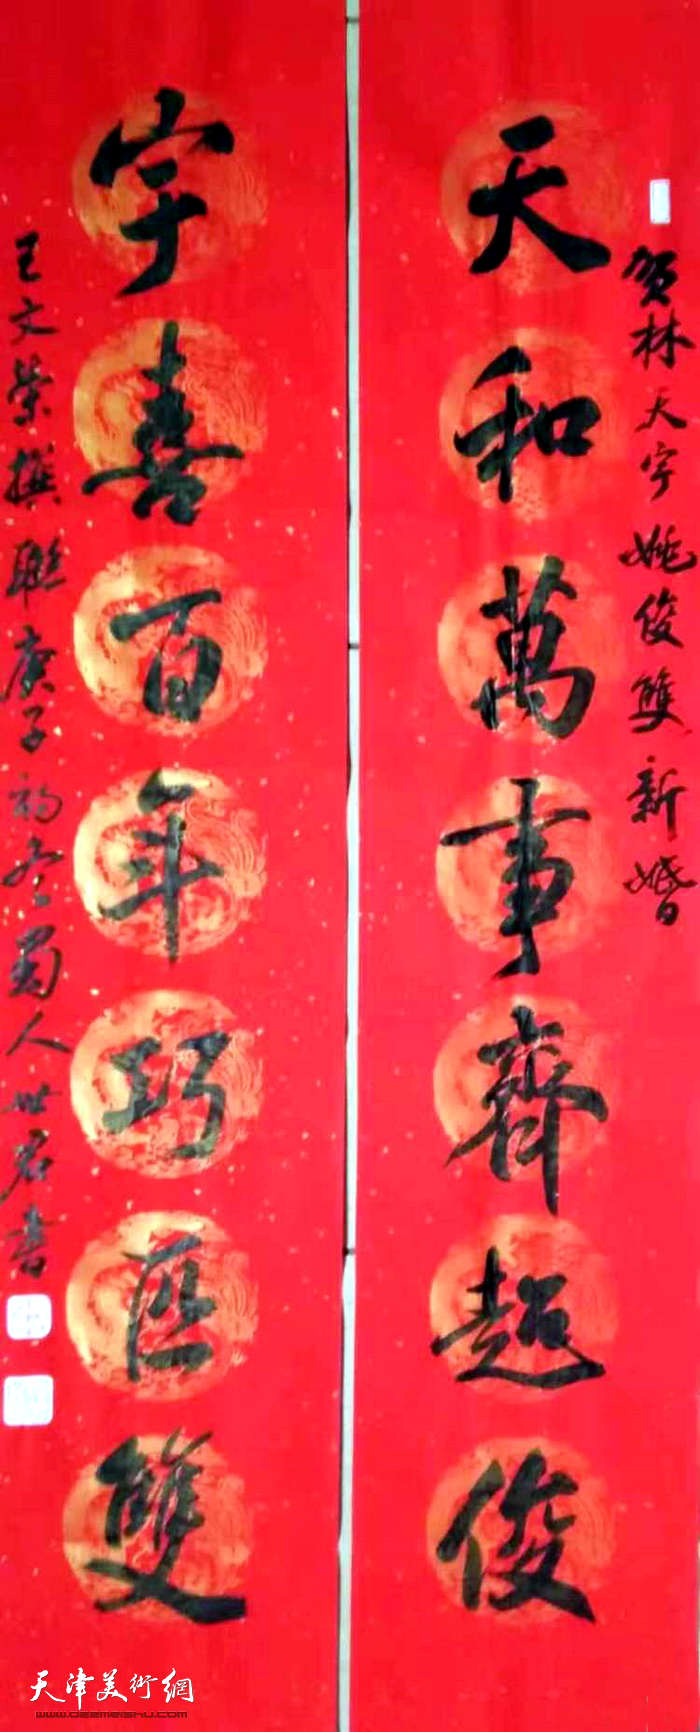 賀林天宇姚俊雙新婚
天和萬事齊超俊
宇喜百年巧匹雙
王文榮撰聯庚子初冬蜀人世君書
天津美術網